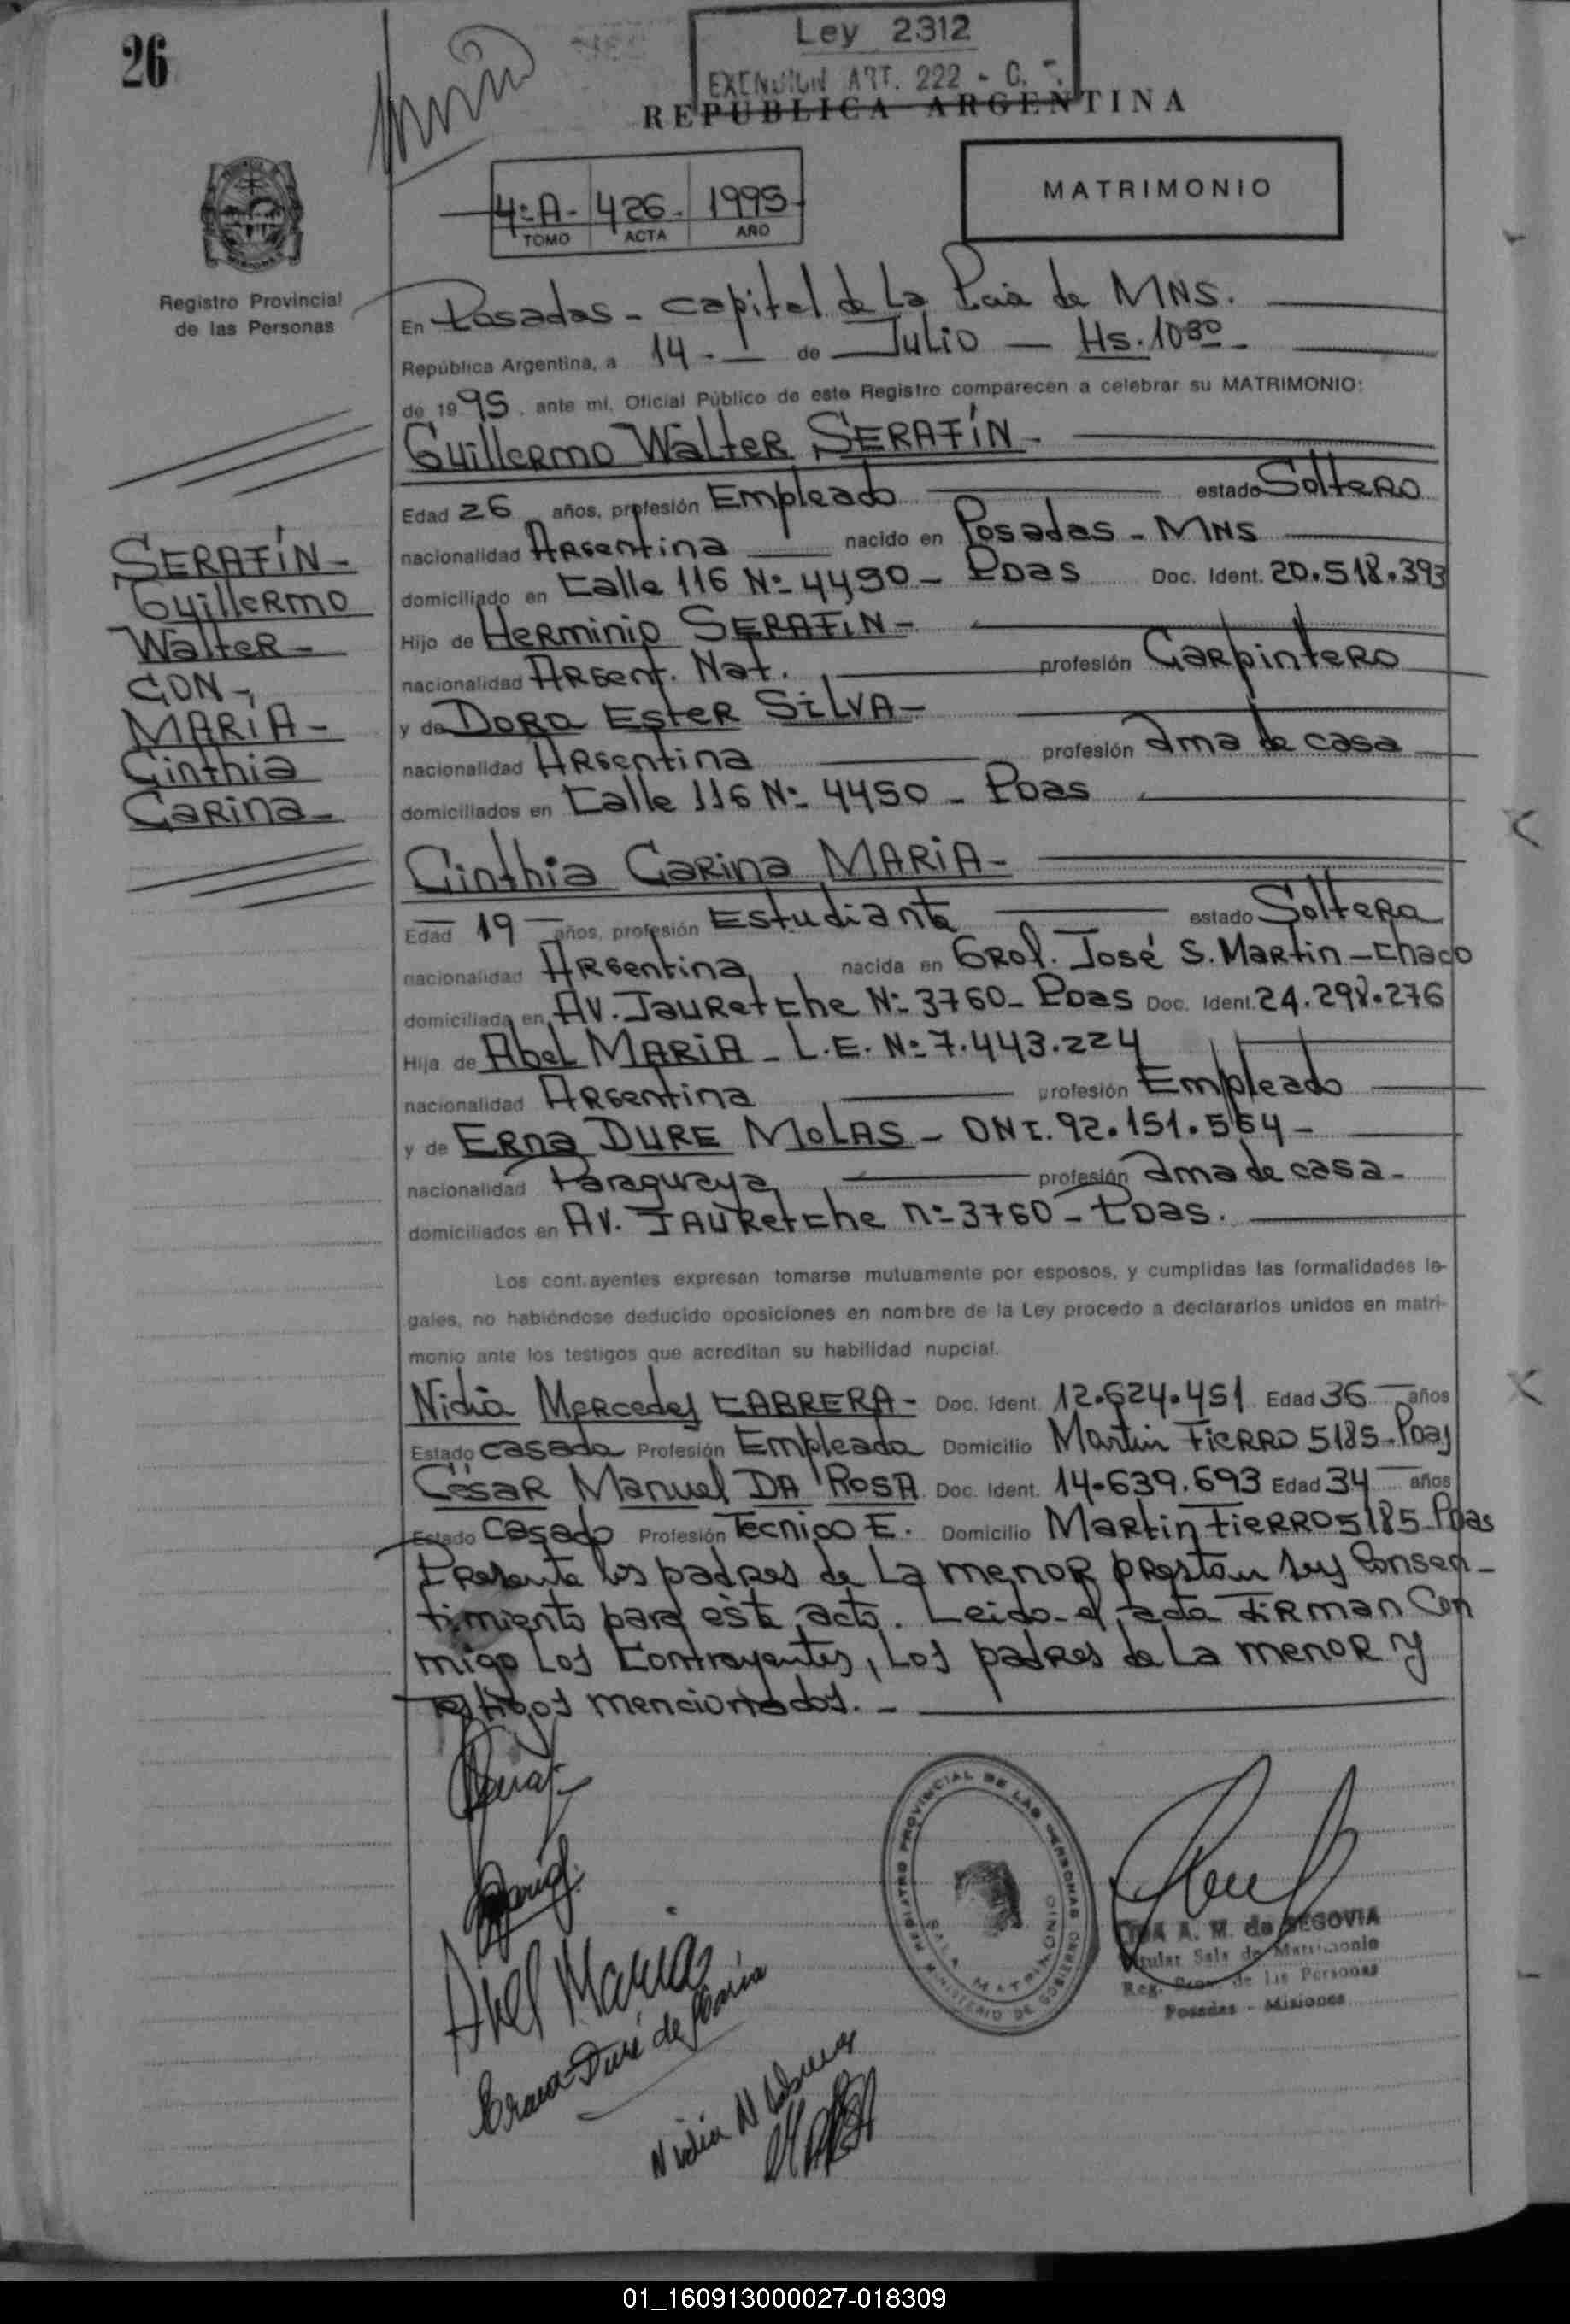 26
Ley 2312
EXENSION ART. 222 - C.
REPUBLICA ARGENTINA
4º A - 426 - 1995
TOMO ACTA AÑO
MATRIMONIO
Registro Provincial
de las Personas
En Posadas - capital de La Pcia de MNS.
República Argentina, a 14 - de Julio - Hs. 10 30 -
de 1995, ante mí, Oficial Público de este Registro comparecen a celebrar su MATRIMONIO:
Guillermo Walter SERAFÍN -
Edad 26 años, profesión Empleado estado Soltero
nacionalidad Argentina nacido en Posadas - MNS
domiciliado en Calle 116 Nº 4490 - Pdas Doc. Ident. 20.518.393
Hijo de Herminio SERAFIN -
nacionalidad Argent. Nat. profesión Carpintero
y de Dora Ester SILVA -
nacionalidad Argentina profesión ama de casa
domiciliados en Calle 116 Nº 4450 - Pdas
SERAFÍN -
Guillermo
Walter -
CON -
MARIA -
Cinthia
Carina -
Cinthia Carina MARIA -
Edad 19 años, profesión Estudiante estado Soltera
nacionalidad Argentina, nacida en Gral. José S. Martin - Chaco
domiciliada en AV. Jauretche Nº 3760 - Pdas Doc. Ident. 24.298.276
Hija de Abel MARIA - L.E. Nº 7.443.224
nacionalidad Argentina profesión Empleado
y de Erna DURE MOLAS - DNI. 92.151.564 -
nacionalidad Paraguaya, profesión ama de casa -
domiciliados en AV. JAURetche nº 3760 - Pdas.
Los contrayentes expresan tomarse mutuamente por esposos, y cumplidas las formalidades le-
gales, no habiéndose deducido oposiciones en nombre de la Ley procedo a declararlos unidos en matri-
monio ante los testigos que acreditan su habilidad nupcial.
Nidia Mercedes CABRERA - Doc. Ident. 12.624.451 Edad 36 años
Estado casada Profesión Empleada Domicilio Martin FIERRO 5185 - Pdas
César Manuel DA ROSA Doc. Ident. 14.639.693 Edad 34 años
Estado Casado Profesión Tecnico E. Domicilio Martin FIERRO 5185 - Pdas
Presente los padres de La menor prestan sus Consen-
timiento para éste acto. Leido el acta FIRMAN Con
migo Los Contrayentes, Los padres de La menor y
testigos mencionados. -
Abel Maria
Erna Duré de Maria
REGISTRO PROVINCIAL DE LAS PERSONAS
SALA MATRIMONIO
MINISTERIO DE GOBIERNO
A. M. de SEGOVIA
Titular Sala de Matrimonio
Reg. Prov. de las Personas
Posadas - Misiones
01_160913000027-018309